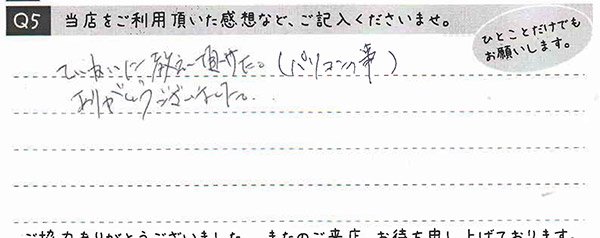 Q5 当店をご利用頂いた感想など、ご記入くださいませ。
ひとことだけでも
お願いします。
ていねいに教えて頂けた。(パソコン事)
ありがとうございました。
ご協力ありがとうございました。またのご来店、お待ち申し上げております。